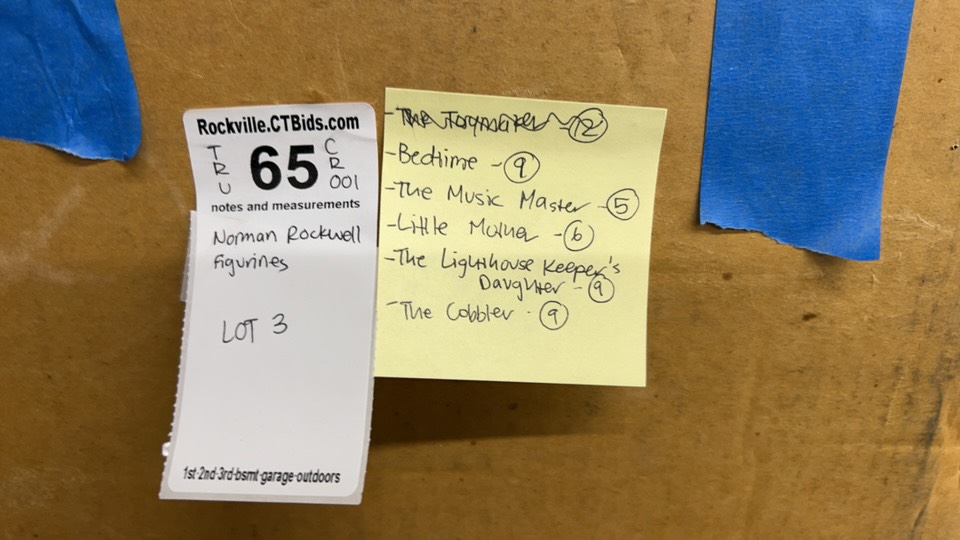 Rockville.CTBids.com
TRU 65 CR 001
notes and measurements
Norman Rockwell
Figurines
LOT 3
1st-2nd-3rd-bsmt-garage-outdoors
- The Toymaker 12
- Bedtime - 9
- The Music Master - 5
- Little Mother - 6
- The Lighthouse Keeper's
Daughter - 9
- The Cobbler - 9